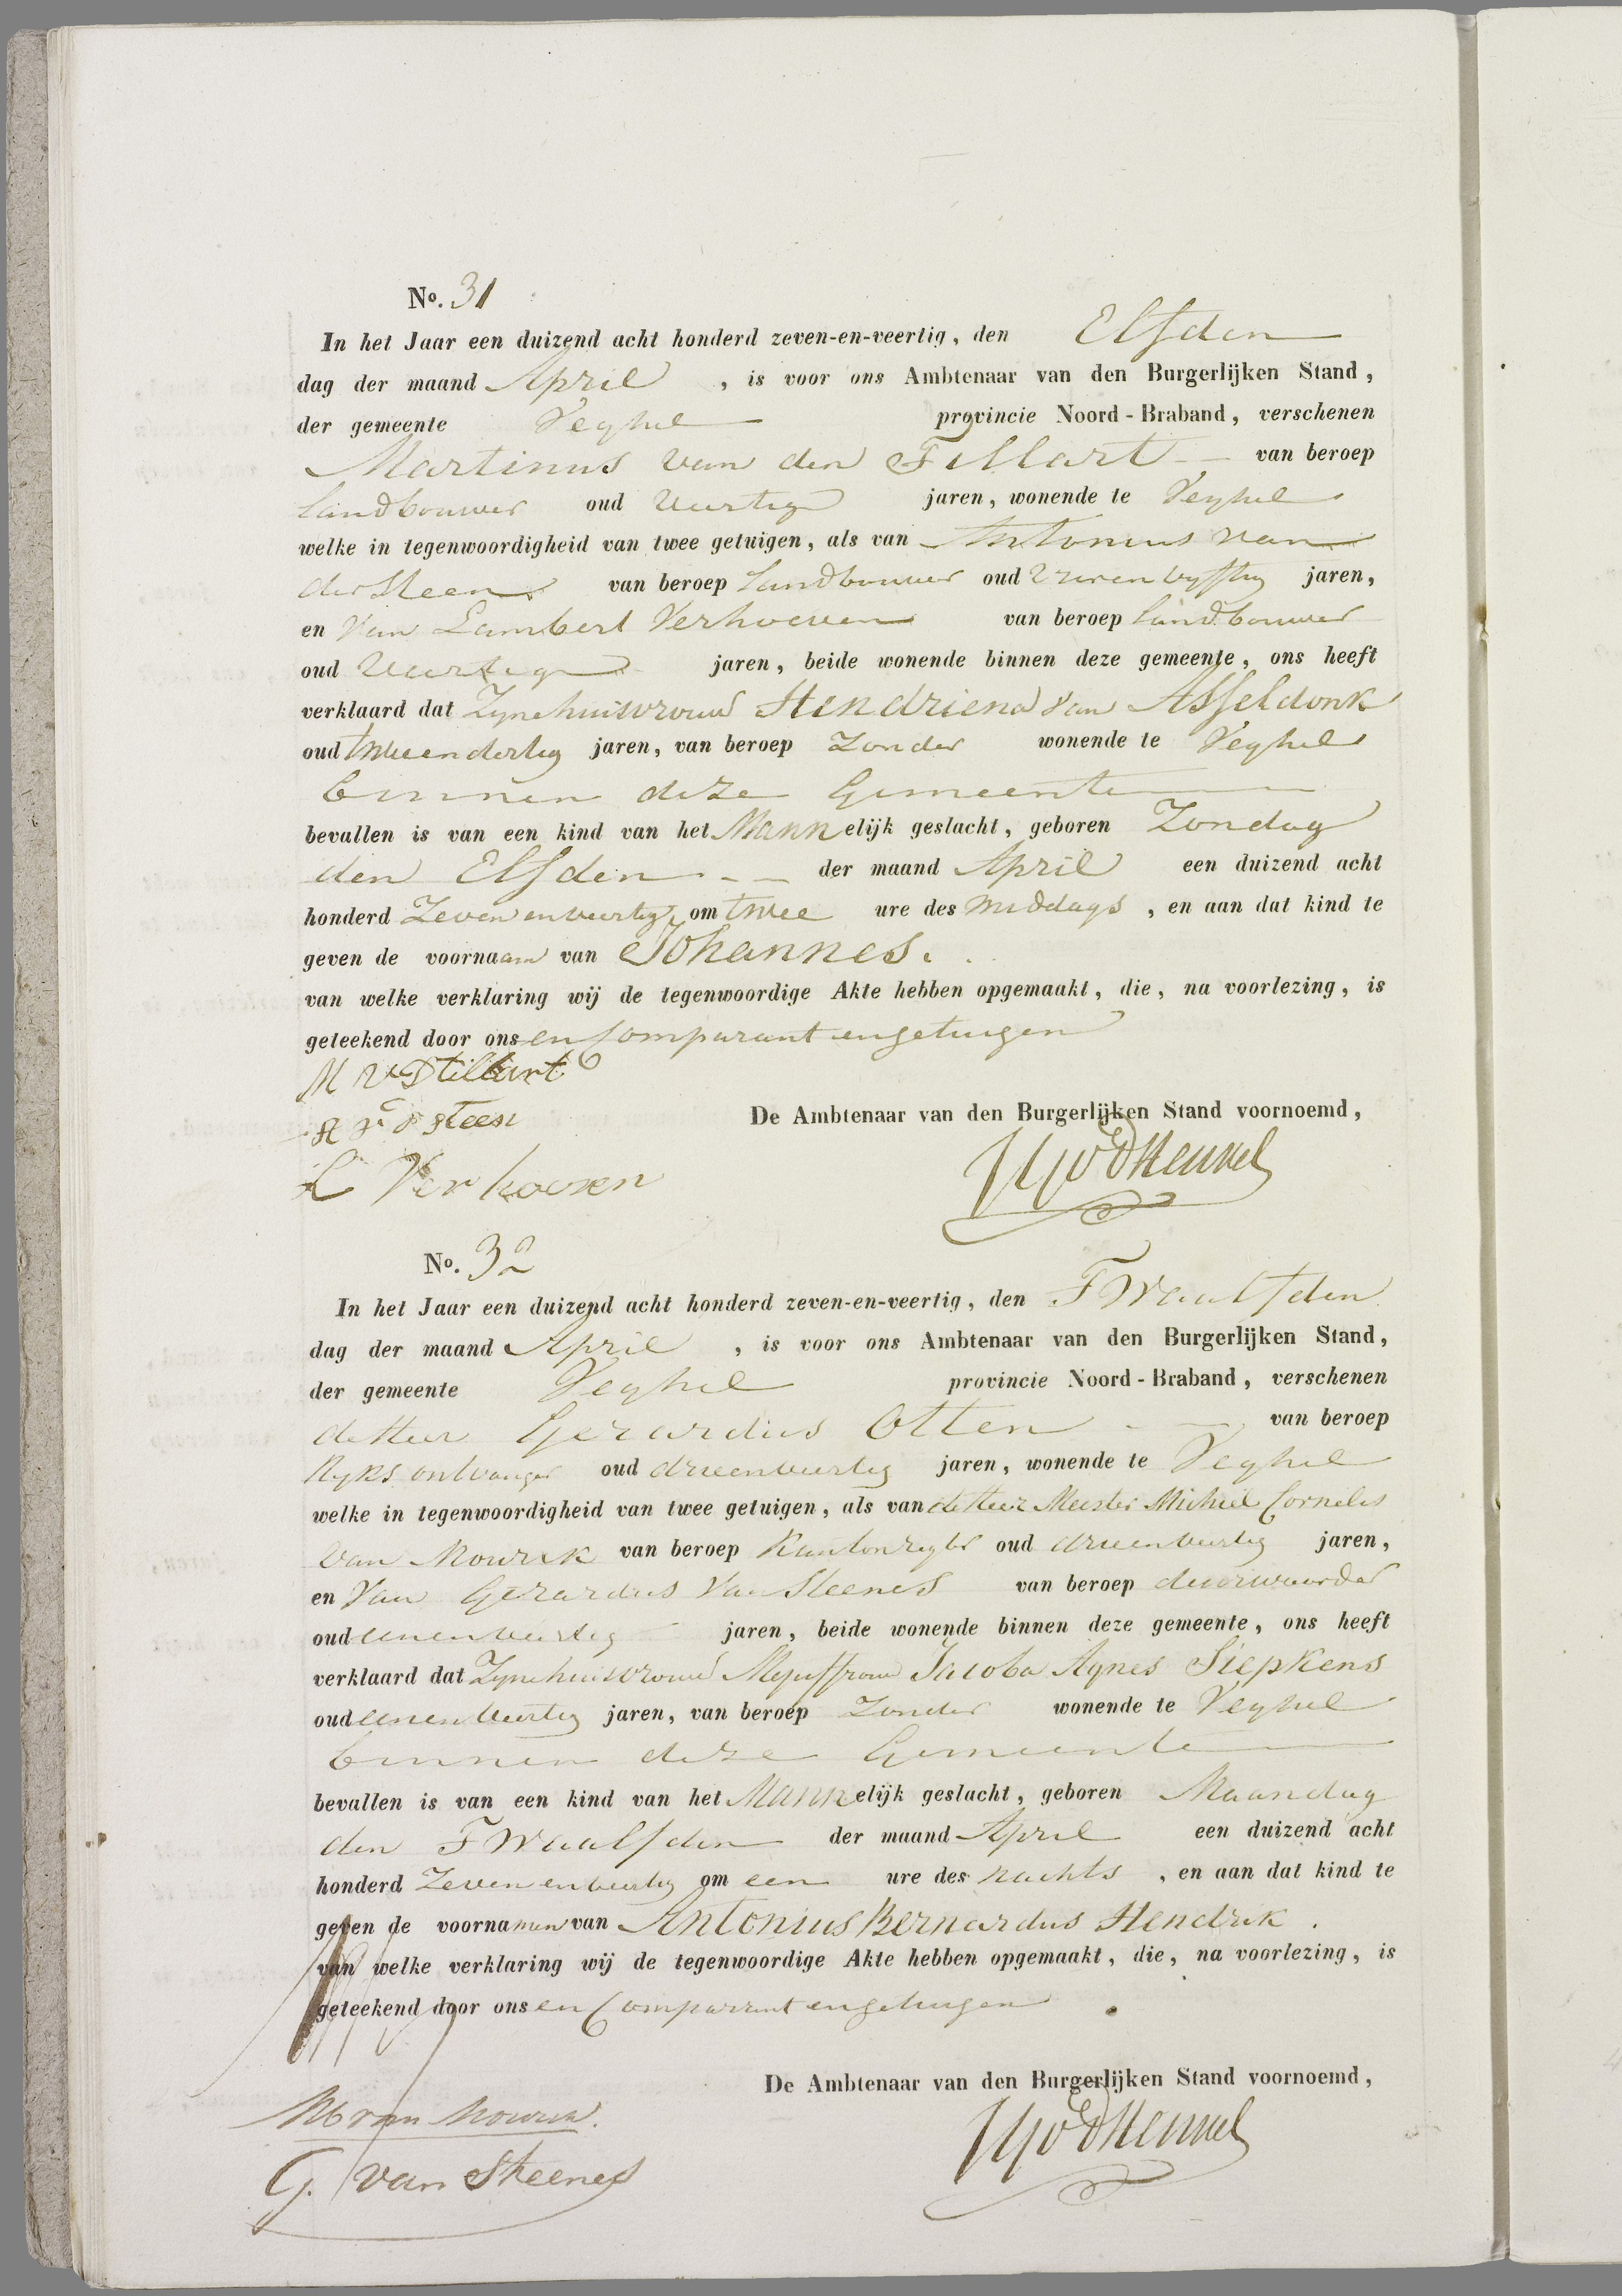 No. 31
In het Jaar een duizend acht honderd zeven-en-veertig, den Elfden
dag der maand April , is voor ons Ambtenaar van den Burgerlijken Stand,
der gemeente Veghel provincie Noord-Braband, verschenen
Martinus van den Tillart van beroep
Landbouwer oud Veertig jaren, wonende te Veghel
welke in tegenwoordigheid van twee getuigen, als van Antonius van
der Steen van beroep Landbouwer oud jaren,
en Van Lambert Verhoeven van beroep Landbouwer
oud Veertig jaren, beide wonende binnen deze gemeente, ons heeft
verklaard dat Zyne huisvrouw Hendriena van Asseldonk
oud tweendertig jaren, van beroep Zonder wonende te Veghel
binnen deze Gemeente
bevallen is van een kind van het Mannelijk geslacht, geboren Zondag
den Elfden der maand April een duizend acht
honderd Zeven en veertig, om twee ure des middags , en aan dat kind te
geven de voornaam van Johannes.
van welke verklaring wij de tegenwoordige Akte hebben opgemaakt, die, na voorlezing, is
geteekend door ons en Comparant en getuigen
M v D tillart
A v d steen
L Verhoeven
De Ambtenaar van den Burgerlijken Stand voornoemd,
No. 32
In het Jaar een duizend acht honderd zeven-en-veertig, den Twaalfden
dag der maand April , is voor ons Ambtenaar van den Burgerlijken Stand,
der gemeente Veghel provincie Noord-Braband, verschenen
de Heer Gerardus Otten van beroep
Ryks ontvanger oud drieenveertig jaren, wonende te Veghel
welke in tegenwoordigheid van twee getuigen, als van de Heer Meester Michiel Cornelis
van Mourik van beroep Kantonregter oud drieenveertig jaren,
en Van Gerardus Van Steenes van beroep deurwaarder
oud eenenveertig jaren, beide wonende binnen deze gemeente, ons heeft
verklaard dat Zyne huisvrouw Mejuffrouw Jacoba Agnes Siepkens
oud eenenveertig jaren, van beroep Zonder wonende te Veghel
binnen deze Gemeente
bevallen is van een kind van het Mannelijk geslacht, geboren Maandag
den Twaalfden der maand April een duizend acht
honderd Zeven en veertig om een ure des nachts , en aan dat kind te
geven de voornamen van Antonius Bernardus Hendrik.
van welke verklaring wij de tegenwoordige Akte hebben opgemaakt, die, na voorlezing, is
geteekend door ons en Comparant en getuigen
De Ambtenaar van den Burgerlijken Stand voornoemd,
van Mourik.
G. van Steenes